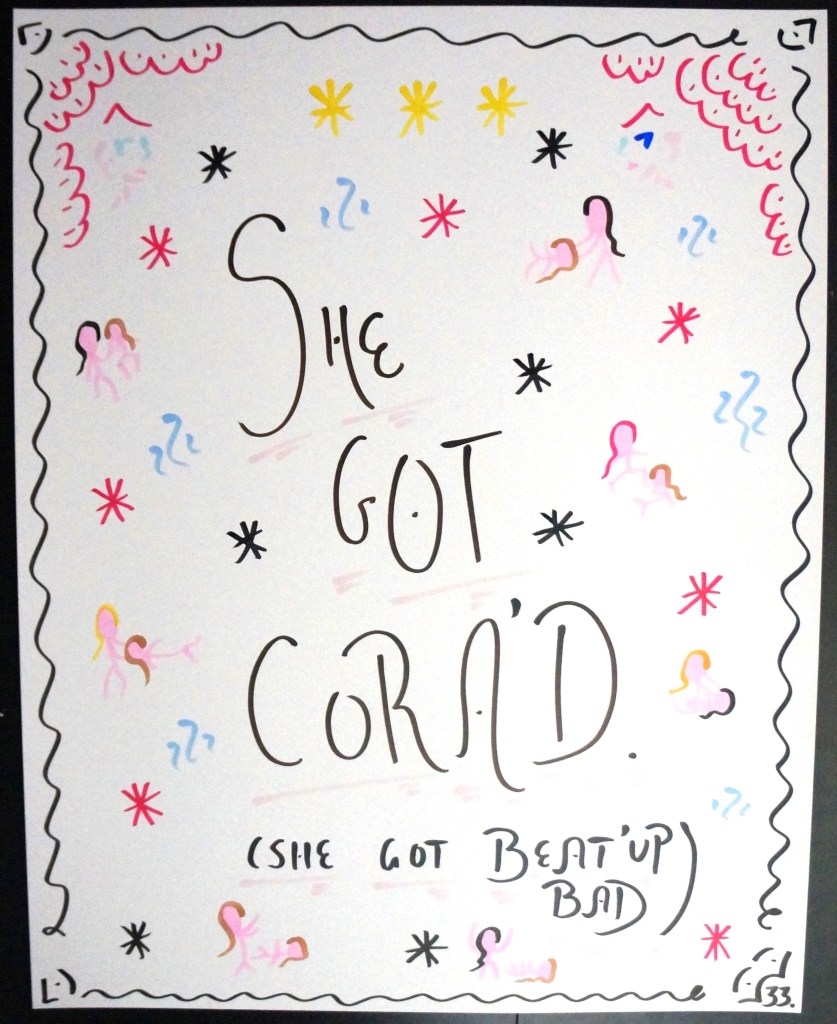 SHE
GOT
CORA'D.
(SHE GOT BEAT'UP
BAD)
33.